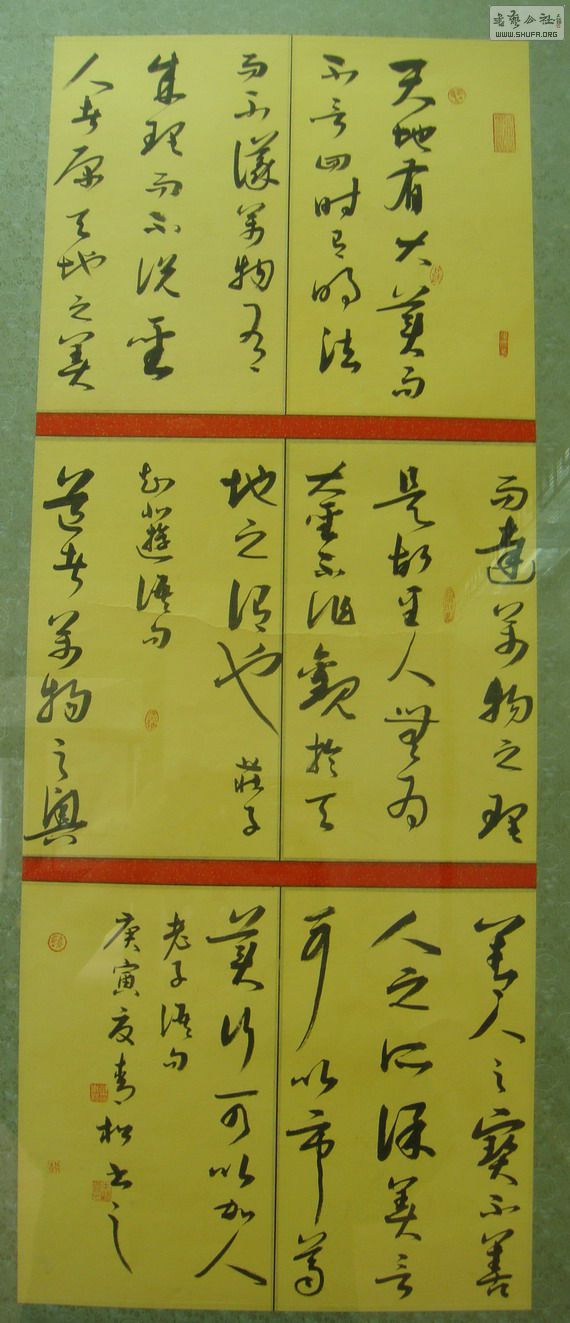 天地有大美而
不言四时有明法
而不议万物有
成理而不说圣
人者原天地之美
而达万物之理
是故至人无为
大圣不作观于天
地之谓也 莊子
知北游语句
道者万物之奥
善人之宝不善
人之所保美言
可以市尊
美行可以加人
老子语句
庚寅夏青松书之
书艺公社
WWW.SHUFA.ORG